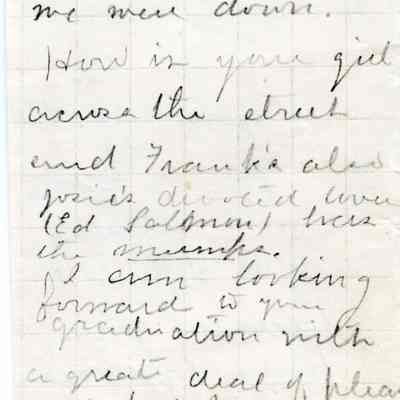 we were down.
How is your girl
across the street
and Frank's also
Josie's devoted lover
(Ed Salmon) has
the mumps.
I am looking
forward to your
graduation with
a great deal of pleas